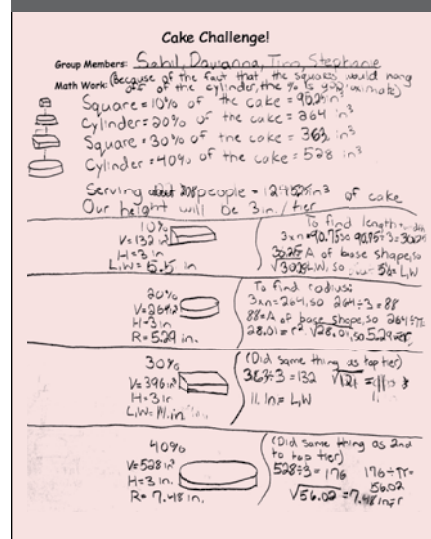 Cake Challenge!
Group Members: Sahil, Davianna, Tira, Stephanie
Math Work: (Because of the fact that the squares would hang
off of the cylinder, the % is approximate)
Square = 10% of the cake = 90.75 in³
Cylinder = 20% of the cake = 264 in³
Square = 30% of the cake = 363 in³
Cylinder = 40% of the cake = 528 in³
Serving people = in³ of cake
Our height will be 3in./tier
10%
V= 132 in³
H=3 in
L,W= 5.5 in
To find length+width
3×n=90.75 so 90.75÷3=30.25
30.25 A of base shape, so
√30.25 L,W, so = L,W
20%
V=264in³
H=3in
R=5.29 in.
To find radius:
3×n=264, so 264÷3=88
88=A of base shape, so
28.01=r² √28.01, so 5.29=r
30%
V=396in³
H=3in
L,W= 11.in
(Did same thing as top tier)
363÷3=132 √121 =
11.in= L,W
40%
V=528in³
H=3in.
R=7.48in.
(Did same thing as 2nd
to top tier)
528÷3=176 176÷π=
56.02
√56.02=7.48in=r